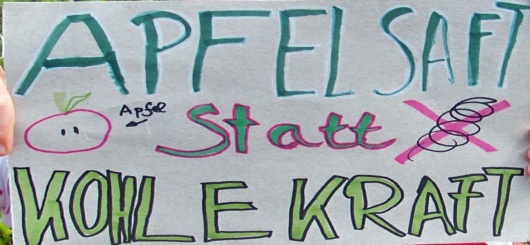 APFELSAFT
Apfel
Statt
KOHLE KRAFT